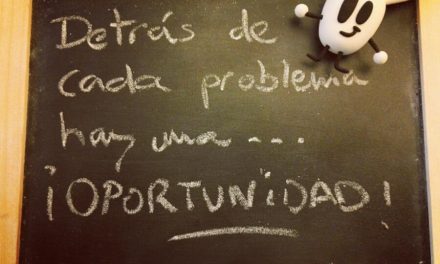 Detrás de
cada problema
hay una ---
¡OPORTUNiDAD!